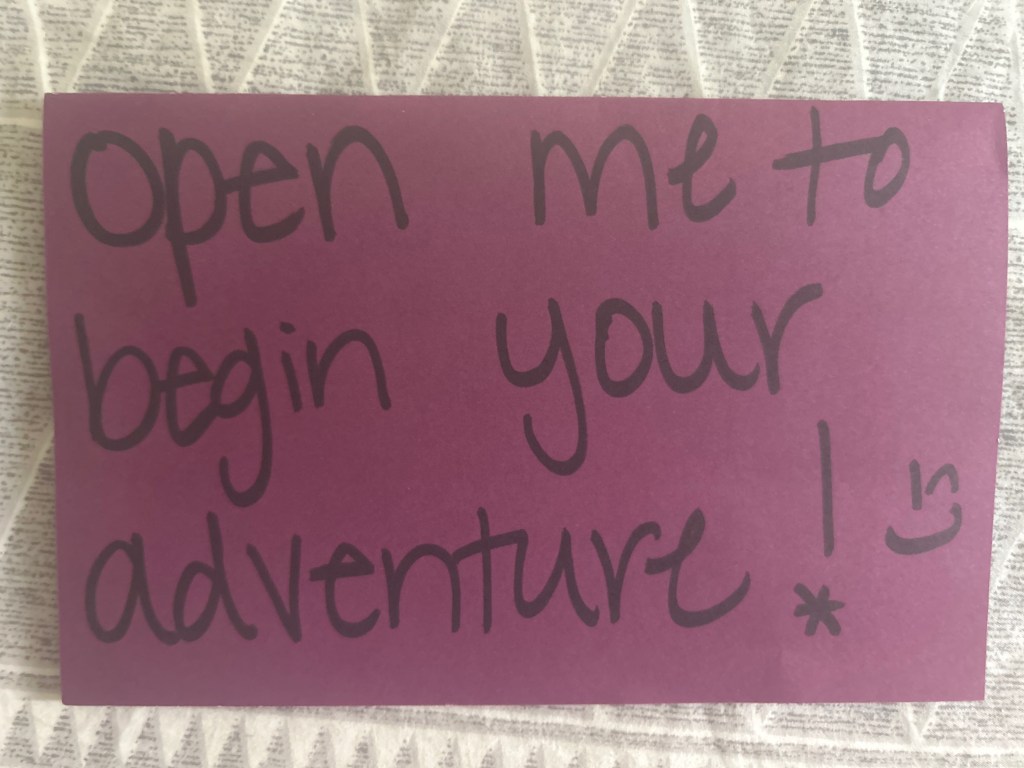 open me to
begin your
adventure!